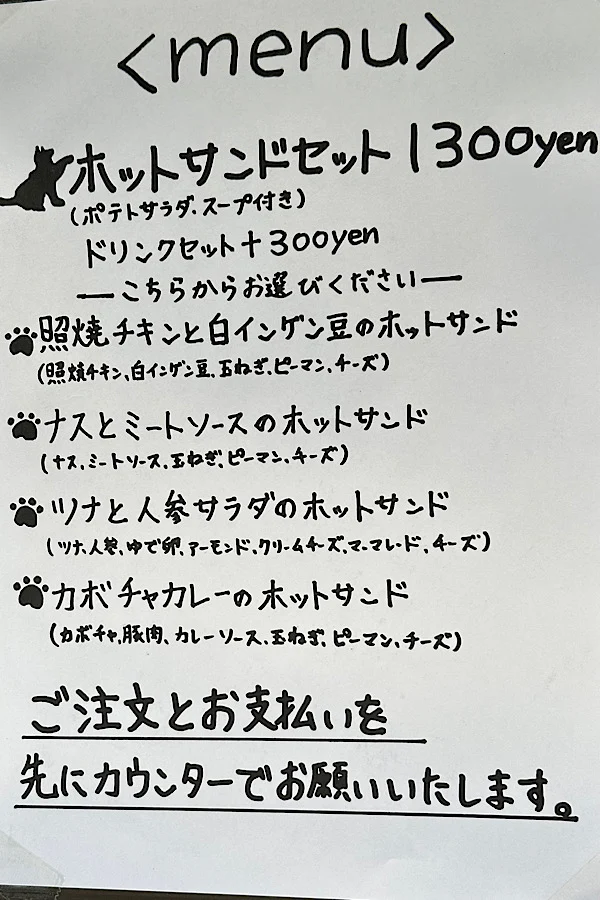 <menu>
ホットサンドセット 1300yen
(ポテトサラダ.スープ付き)
ドリンクセット+300yen
ーこちらからお選びくださいー
照焼チキンと白インゲン豆のホットサンド
(照焼チキン、白インゲン豆、玉ねぎ、ピーマン、チーズ)
ナスとミートソースのホットサンド
(ナス、ミートソース、玉ねぎ、ピーマン、チーズ)
ツナと人参サラダのホットサンド
(ツナ、人参、ゆで卵、アーモンド、クリームチーズ、マーマレード、チーズ)
カボチャカレーのホットサンド
(カボチャ、豚肉、カレーソース、玉ねぎ、ピーマン、チーズ)
ご注文とお支払いを
先にカウンターでお願いいたします。